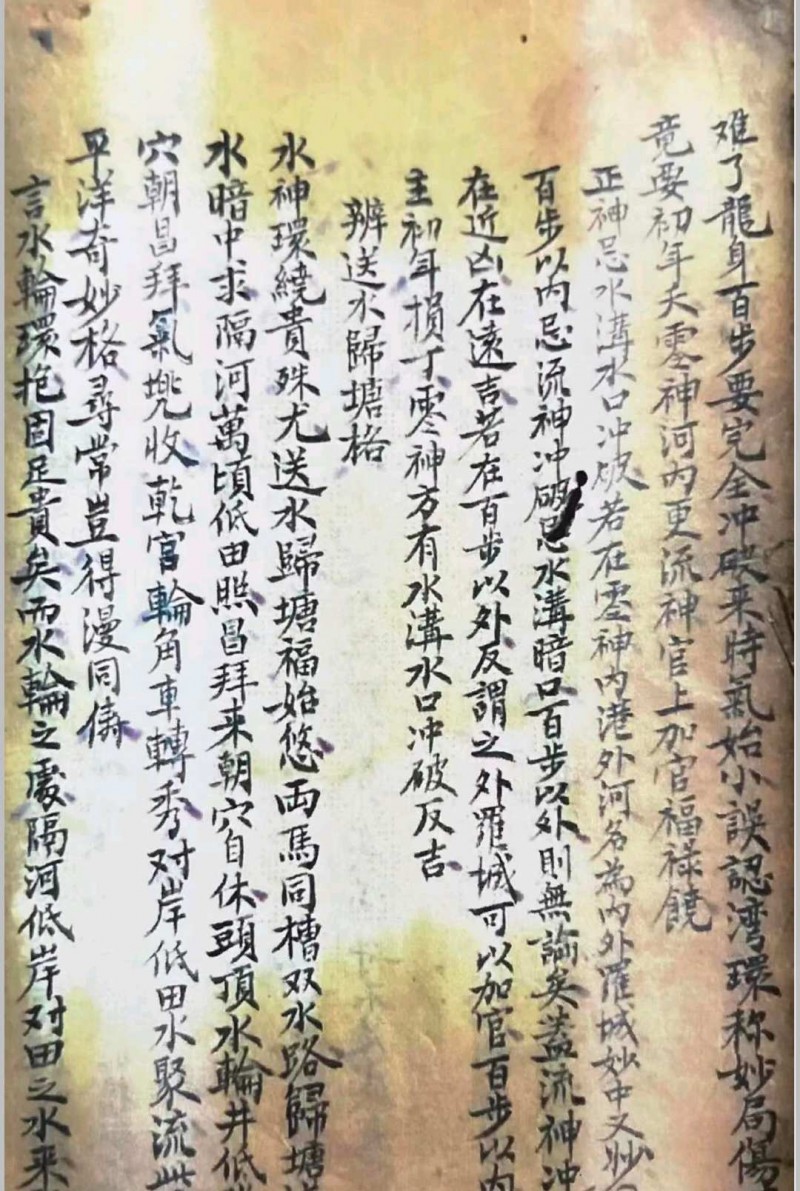 难了龍身百步要完全冲破来時氣始小誤認湾環称妙局傷
竟要初年夭零神河内更流神官上加官福祿饒
正神忌水溝水口冲破若在零神内港外河名為内外羅城妙中又妙
百步以内忌流神冲破忌水溝暗口百步以外則無論矣蓋流神冲
在近凶在遠吉若在百步以外反謂之外羅城可以加官百步以内
主初年損丁零神方有水溝水口冲破反吉
辨送水歸塘格
水神環繞貴殊尤送水歸塘福始悠両馬同槽双水路歸塘
水暗中求隔河萬頃低田照昌拜来朝穴自休頭頂水輪井低
穴朝昌拜氣兠收乾宮輪角車轉秀对岸低田水聚流
平洋奇妙格尋常豈得漫同儔
言水輪環抱固足貴矣而水輪之處隔河低岸对田之水来